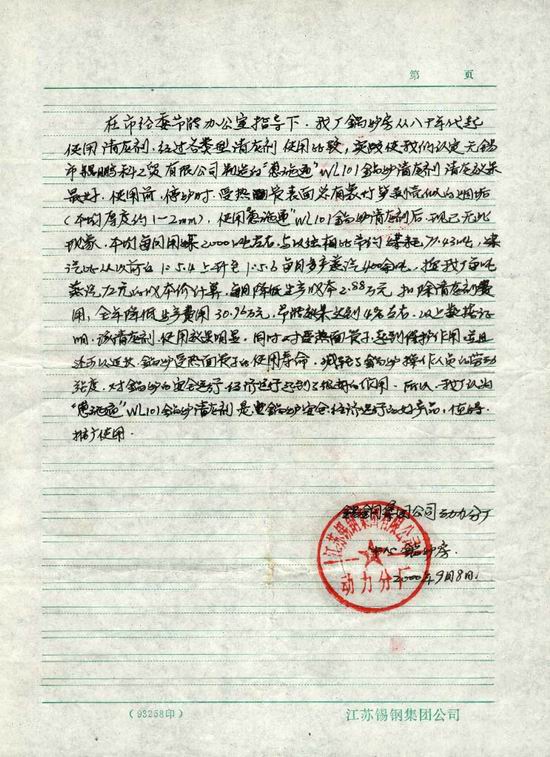 第 页
在市经委节能办公室指导下,我厂锅炉房从八十年代起
使用清灰剂,经过各类型清灰剂使用比较,实践使我们认定无锡
市 科工贸有限公司制造的"惠施通"WL101锅炉清灰剂清灰效果
最好,使用前,停炉时,受热面管表面总有 的烟垢
(平均厚度约1-2mm),使用"惠施通"WL101锅炉清灰剂后,现已无此
现象,平均每月用煤2000吨左右,与以往相比节约煤耗71.43吨,煤
汽比从以前的1:5.4上升至1:5.6每月多产蒸汽400余吨,按我厂每吨
蒸汽72元的成本价计算,每月降低生产成本2.88万元,扣除清灰剂费
用,全年降低生产费用30.96万元,节能效果达到4%左右,以上数据证
明,该清灰剂使用效果明显,同时对受热面管子起到保护作用,并且
还可以延长锅炉受热面管子的使用寿命,减轻了锅炉操作人员的劳动
强度,对锅炉的安全运行,经济运行起到了很好的作用。所以,我厂认为
"惠施通"WL101锅炉清灰剂是 锅炉安全经济运行的好产品,值得
推广使用。
锡钢集团公司动力分厂
中心锅炉房.
2000年9月8日.
江苏锡钢集团有限公司
动力分厂
(93258印)
江苏锡钢集团公司